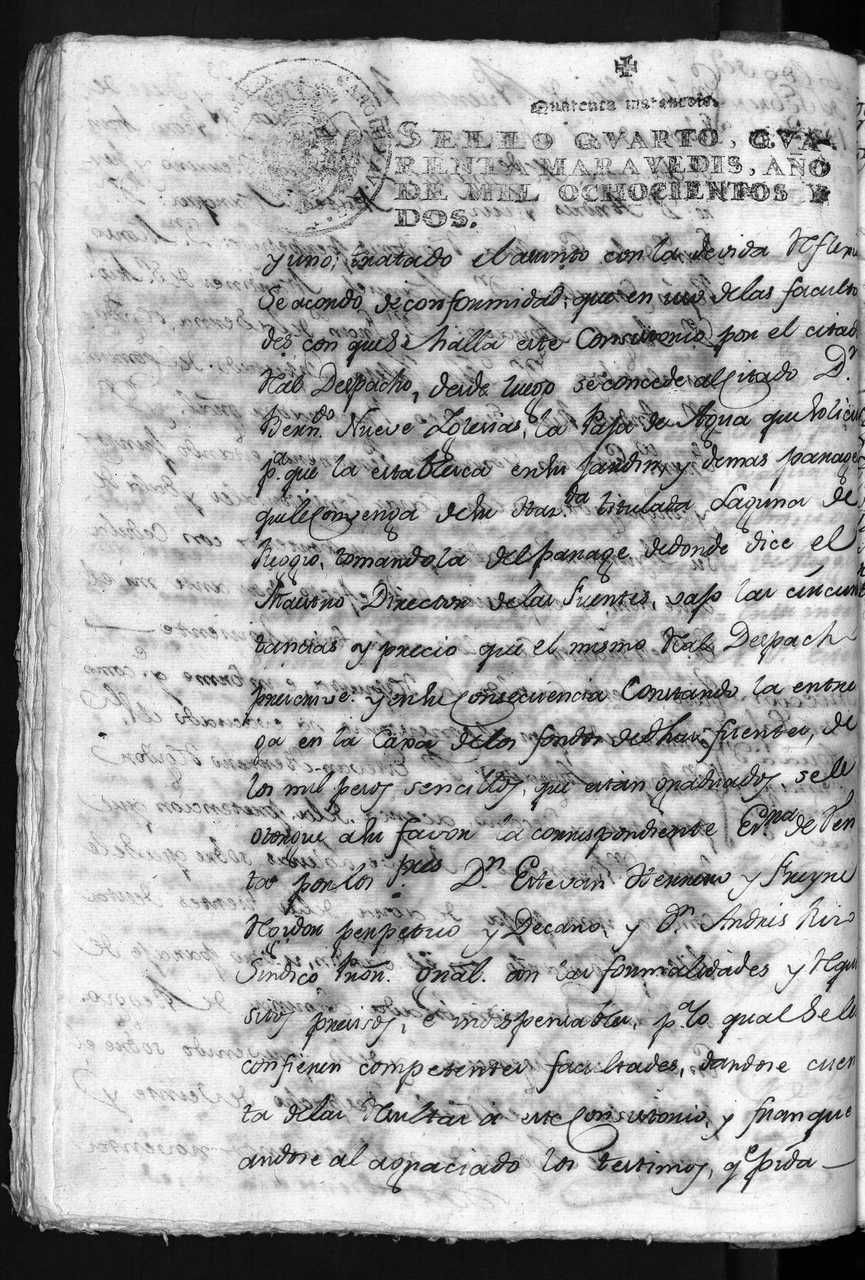 Quarenta maravedis.
SELLO QVARTO, QVA-
RENTA MARAVEDIS, AÑO
DE MIL OCHOCIENTOS Y
DOS.
y uno; tratado el asunto con la devida
Se acordo de conformidad, que en uso de las faculta
des con que se halla este Consistorio por el citado
Rl. Despacho, desde luego se concede al citado Dn.
Berndo. Nueve Iglesias, la Paja de Agua que solicita
pa. que la establesca en su Jardin, y demas parages
que le convenga de su Hazda. titulada Laguna de
Reogio, tomandola del parage, dedonde dice el
Maestro, Director de las Fuentes, vajo las circuns
tancias y precio que el mismo Rl. Despacho
prescrive. y en su consecuencia Constando la entre
ga en la Caxa de los fondos de dhas. fuentes, de
los mil pesos sencillos, que estan graduados, se le
otorgue a su favor la correspondiente Esna. de Ven
ta por los Dn. Estevan Herrera y Freyne
Rexidor perpetuo y Decano, y Dn. Andres
Sindico Pror. Gnal. con las formalidades y Requi
sitos precisos, e indispensables, pa. lo qual se les
confieren competentes facultades, dandose cuen
ta de las Resultas a este Consistorio, y franque
andose al agraciado los testimos, qe. pida